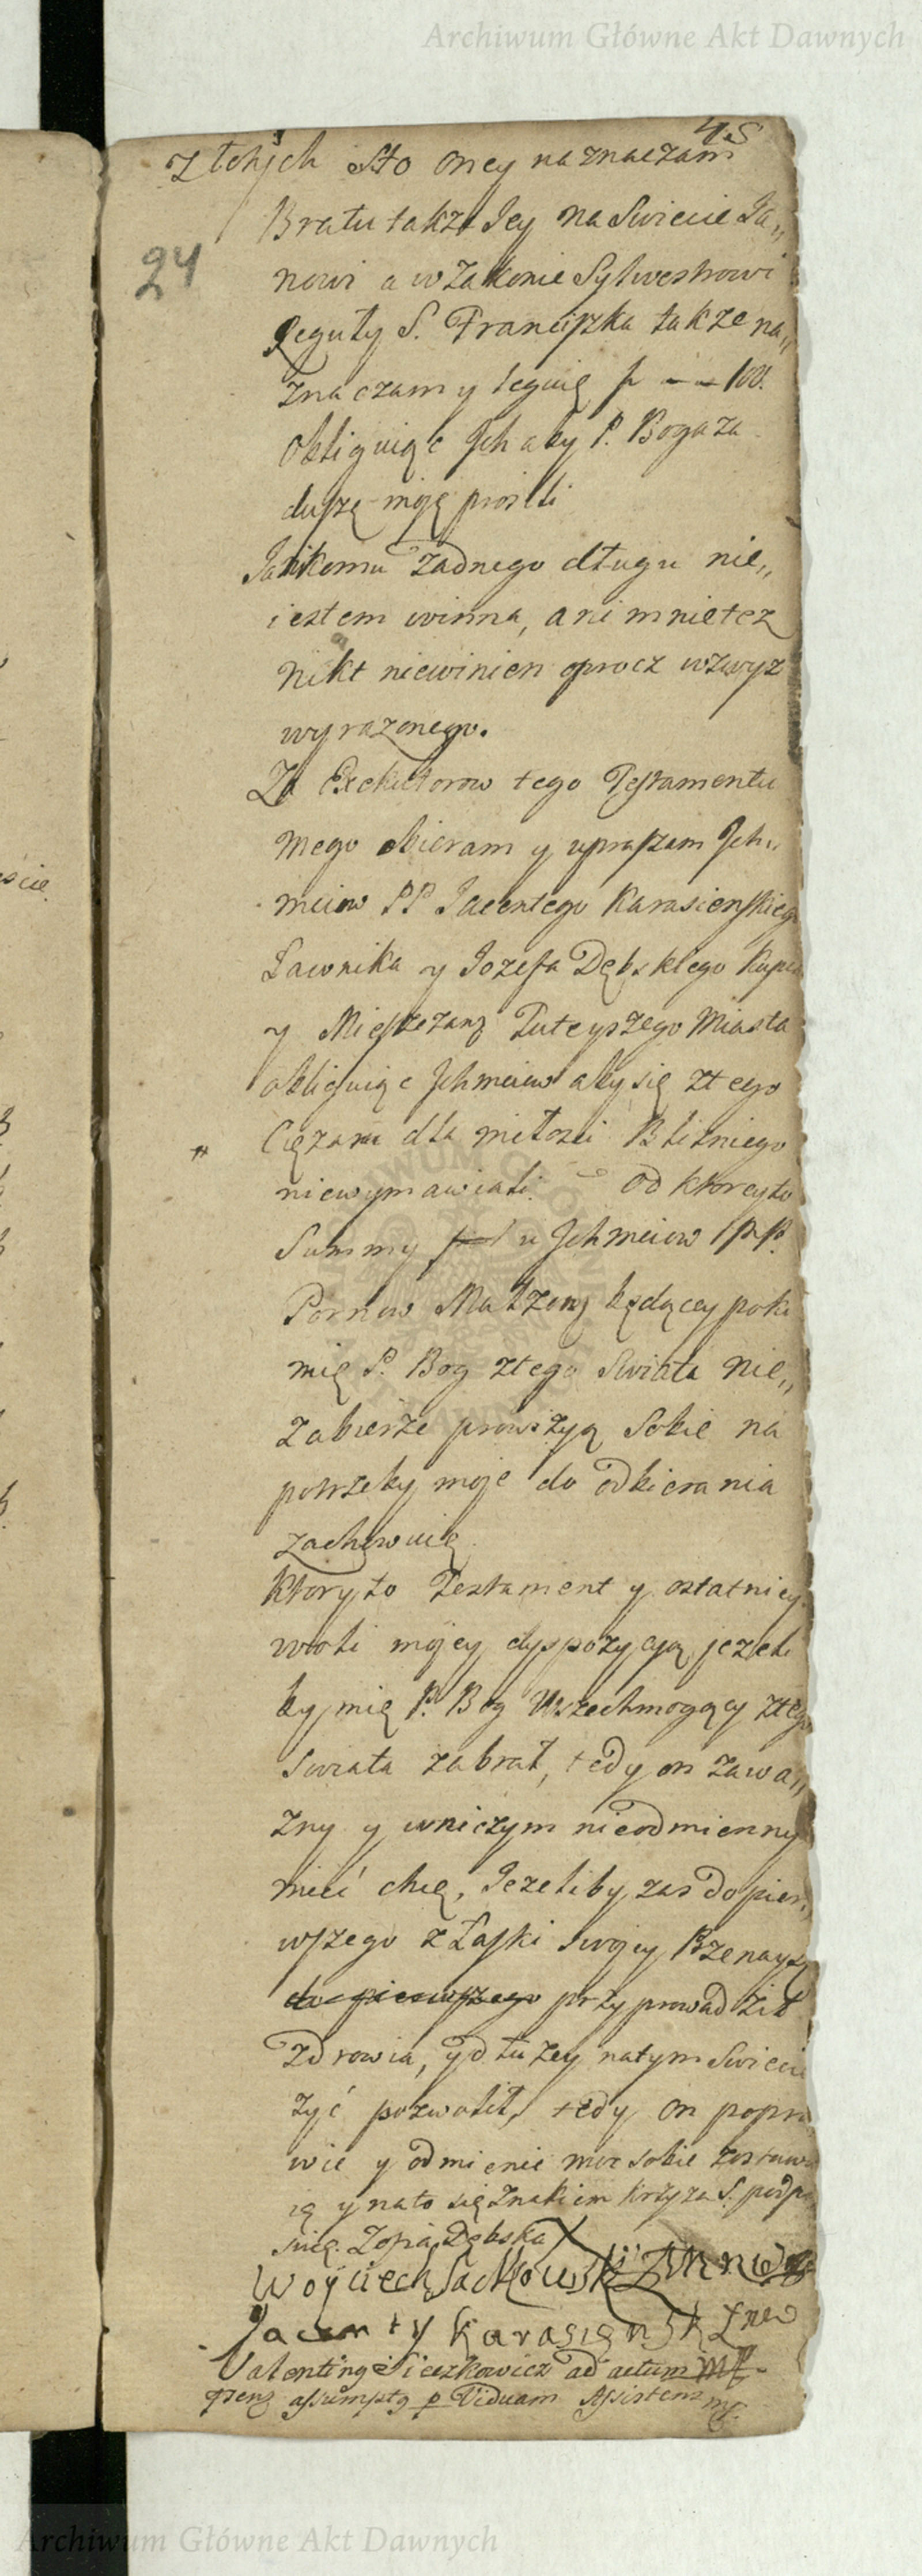 Archiwum Główne Akt Dawnych
45
złotych sto oney naznaczam
Bratu także Jey na Swiecie Ja„
24
nowi a w Zakonie Sylwestrowi
Reguły S. Franciszka także na„
znaczam y leguię fl — — 100.
Obliguiąc Jch aby P. Boga za
duszę moję prosili
Ja nikomu żadnego długu nie„
iestem winna, ani mnie tez
nikt niewinien oprocz wzwyz
wyrazonego.
Za Exekutorow tego Testamentu
mego obieram y upraszam Jch„
mciow PP Jacentego Karasienskiego
Ławnika y Jozefa Dębskiego Kupca
y Mieszczanę Tuteyszego Miasta
obliguiąc Jchmciow aby się z tego
Cięzaru dla miłosci Blizniego
niewymawiali. Od ktorey to
Summy u Jchmciow PP.
Małżonķ będącey poki
mię P. Bog z tego Swiata nie„
zabierze prowizyą sobie na
potrzeby moje do odbierania
zachowuię
Ktory to Testament y ostatniey
woli mojey dyspozycyą jezeli
by mię P. Bog Wszechmogący z tego
Swiata zabrał, tedy on za wa„
zny y wniczym nieodmienny
mieć chcę, Jezeliby zas do pier„
wszego z Łaski swojey
do pierwszego przyprowadził
zdrowia, y dłuzey natym Swiecie
żyć pozwolił, tedy on popra
wić y odmienić moc sobie zostawu
ię y nato się znakiem Krzyza S. podpi
suię. Zofia Dębska X
Woyciech Sadkowski
Jacenty Karasięnski
Valentinų Sieczkowicz ad actum mp.
assumptų p Viduam Assistens mp.
Archiwum Główne Akt Dawnych